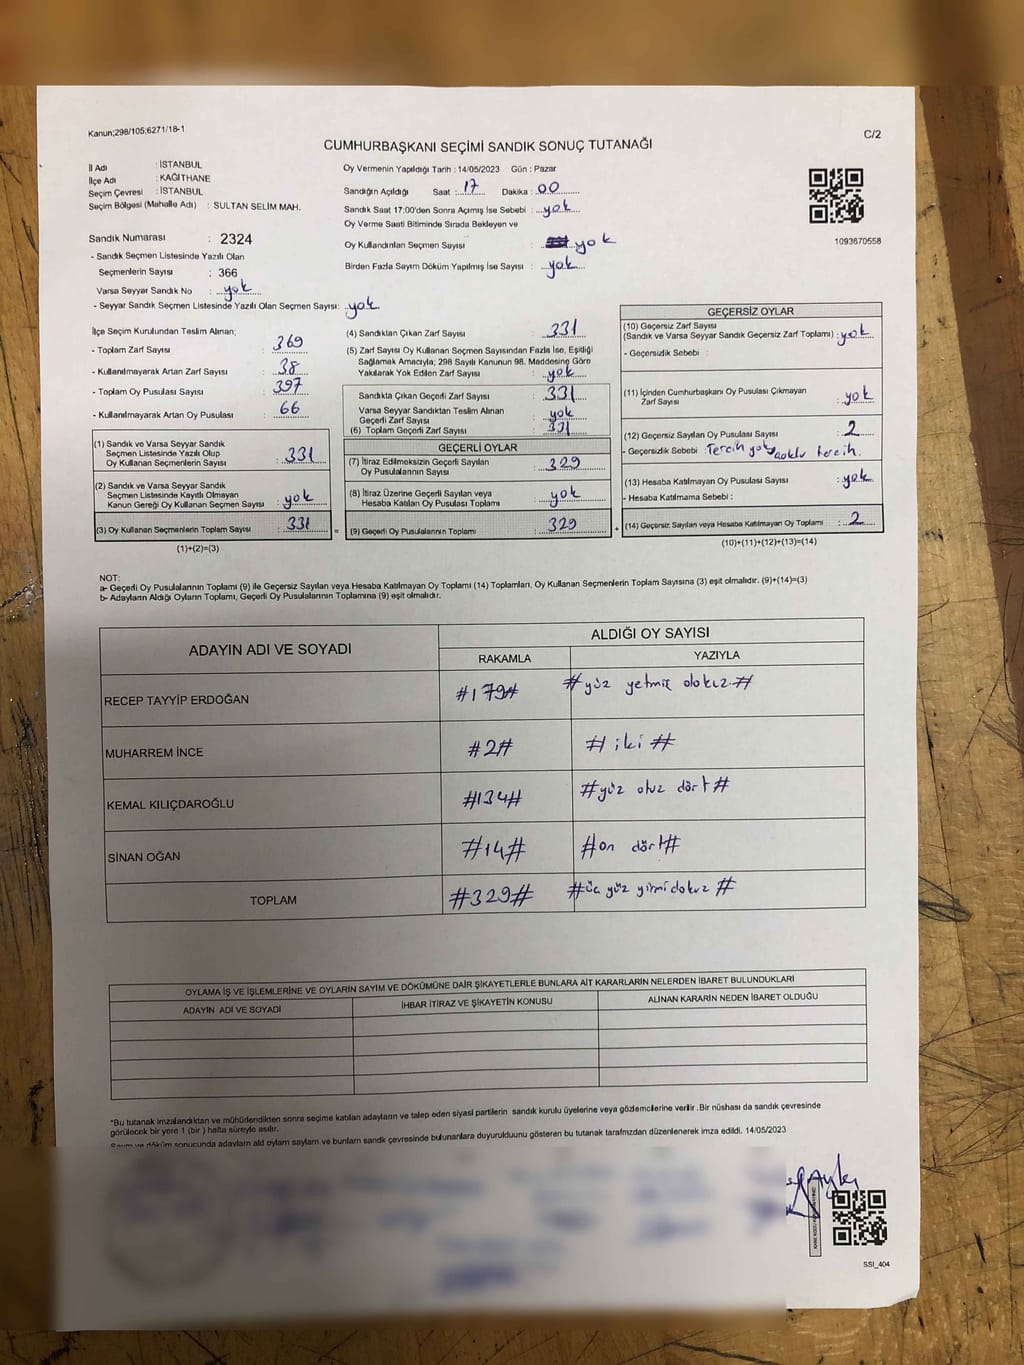 Kanun;298/105;6271/18-1
C/2
CUMHURBAŞKANI SEÇİMİ SANDIK SONUÇ TUTANAĞI
İl Adı : İSTANBUL
İlçe Adı : KAĞITHANE
Seçim Çevresi : İSTANBUL
Seçim Bölgesi (Mahalle Adı) : SULTAN SELİM MAH.
Sandık Numarası : 2324
- Sandık Seçmen Listesinde Yazılı Olan
Seçmenlerin Sayısı : 366
Varsa Seyyar Sandık No : yok
- Seyyar Sandık Seçmen Listesinde Yazılı Olan Seçmen Sayısı: yok
Oy Vermenin Yapıldığı Tarih : 14/05/2023 Gün : Pazar
Sandığın Açıldığı Saat : 17 Dakika : 00
Sandık Saat 17:00'den Sonra Açımış İse Sebebi : yok
Oy Verme Saati Bitiminde Sırada Bekleyen ve
Oy Kullandırılan Seçmen Sayısı : yok
Birden Fazla Sayım Döküm Yapılmış İse Sayısı : yok
1093670558
İlçe Seçim Kurulundan Teslim Alınan;
- Toplam Zarf Sayısı : 369
- Kullanılmayarak Artan Zarf Sayısı : 38
- Toplam Oy Pusulası Sayısı : 397
- Kullanılmayarak Artan Oy Pusulası : 66
(1) Sandık ve Varsa Seyyar Sandık
Seçmen Listesinde Yazılı Olup
Oy Kullanan Seçmenlerin Sayısı : 331
(2) Sandık ve Varsa Seyyar Sandık
Seçmen Listesinde Kayıtlı Olmayan
Kanun Gereği Oy Kullanan Seçmen Sayısı : yok
(3) Oy Kullanan Seçmenlerin Toplam Sayısı : 331
(1)+(2)=(3)
(4) Sandıktan Çıkan Zarf Sayısı : 331
(5) Zarf Sayısı Oy Kullanan Seçmen Sayısından Fazla İse, Eşitliği
Sağlamak Amacıyla; 298 Sayılı Kanunun 98. Maddesine Göre
Yakılarak Yok Edilen Zarf Sayısı : yok
Sandıkta Çıkan Geçerli Zarf Sayısı : 331
Varsa Seyyar Sandıktan Teslim Alınan
Geçerli Zarf Sayısı : yok
(6) Toplam Geçerli Zarf Sayısı : 331
GEÇERLİ OYLAR
(7) İtiraz Edilmeksizin Geçerli Sayılan
Oy Pusulalarının Sayısı : 329
(8) İtiraz Üzerine Geçerli Sayılan veya
Hesaba Katılan Oy Pusulaları Toplamı : yok
= (9) Geçerli Oy Pusulalarının Toplamı : 329
GEÇERSİZ OYLAR
(10) Geçersiz Zarf Sayısı
(Sandık ve Varsa Seyyar Sandık Geçersiz Zarf Toplamı) : yok
- Geçersidlik Sebebi :
(11) İçinden Cumhurbaşkanı Oy Pusulası Çıkmayan
Zarf Sayısı : yok
(12) Geçersiz Sayılan Oy Pusulası Sayısı : 2
- Geçersidlik Sebebi : Tercih yok, çoklu tercih.
(13) Hesaba Katılmayan Oy Pusulası Sayısı : yok
- Hesaba Katılmama Sebebi :
+ (14) Geçersiz Sayılan veya Hesaba Katılmayan Oy Toplamı : 2
(10)+(11)+(12)+(13)=(14)
NOT:
a- Geçerli Oy Pusulalarının Toplamı (9) ile Geçersiz Sayılan veya Hesaba Katılmayan Oy Toplamı (14) Toplamları, Oy Kullanan Seçmenlerin Toplam Sayısına (3) eşit olmalıdır. (9)+(14)=(3)
b- Adayların Aldığı Oyların Toplamı, Geçerli Oy Pusulalarının Toplamına (9) eşit olmalıdır.
ADAYIN ADI VE SOYADI
ALDIĞI OY SAYISI
RAKAMLA YAZIYLA
RECEP TAYYİP ERDOĞAN #179# #yüz yetmiş dokuz#
MUHARREM İNCE #2# #iki#
KEMAL KILIÇDAROĞLU #134# #yüz otuz dört#
SİNAN OĞAN #14# #on dört#
TOPLAM #329# #üç yüz yirmi dokuz#
OYLAMA İŞ VE İŞLEMLERİNE VE OYLARIN SAYIM VE DÖKÜMÜNE DAİR ŞİKAYETLERLE BUNLARA AİT KARARLARIN NELERDEN İBARET BULUNDUKLARI
ADAYIN ADI VE SOYADI İHBAR İTİRAZ VE ŞİKAYETİN KONUSU ALINAN KARARIN NEDEN İBARET OLDUĞU
*Bu tutanak imzalandıktan ve mühürlendikten sonra seçime katılan adayların ve talep eden siyasi partilerin sandık kurulu üyelerine veya gözlemcilerine verilir .Bir nüshası da sandık çevresinde
görülecek bir yere 1 (bir ) hafta süreyle asılır.
Sayım ve döküm sonucunda adayların ald oyların sayların ve bunların sandık çevresinde bulunanlara duyurulduunu gösteren bu tutanak tarafmzdan düzenlenerek imza edildi. 14/05/2023
SSI_404